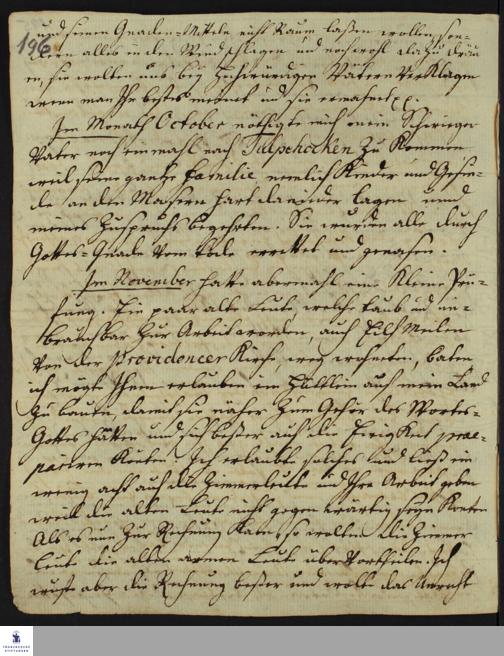 196
und seinen Gnaden-Mitteln nicht Raum laßen wollen, son-
dern alles in den Wind schlagen und noch wohl dazu dräu-
en, sie wolten uns bey Hochwürdigen Vätern verklagen
wenn man Ihr bestes meinet und sie ermahnet
Im Monath October nöthigte mich mein Schwieger
Vater noch einmahl nach Tulpehocken zu kommen
weil seine gantze Familie nemlich Kinder und Gesin-
de an den Masern hart danieder lagen und
meines Zuspruchs begehrten. Sie wurden alle durch
Gottes Gnade vom Tode errettet und genasen.
Im November hatte abermahl eine kleine Prü-
fung. Ein paar alte Leute, welche taub und un-
brauchbar zur Arbeit worden, auch Eilf Meilen
von der Providencer Kirche, weg wohnten, baten
ich möchte Ihnen erlauben ein Hüttlein auf mein Land
zu bauen, damit sie näher zum Gehör des Wortes-
Gottes hätten und sich beßer auf die Ewigkeit prae-
pariren könten. Ich erlaubte solches und ließ ein
wenig acht auf die Zimmerleute und Ihre Arbeit geben
weil die alten Leute nicht gegenwärtig seyn konten
Als es nun zur Rechnung kam, so wolten die Zimmer
leute die alten armen Leute übervortheilen. Ich
wuste aber die Rechnung beßer und wolte das Unrecht
FRANCKESCHE
STIFTUNGEN